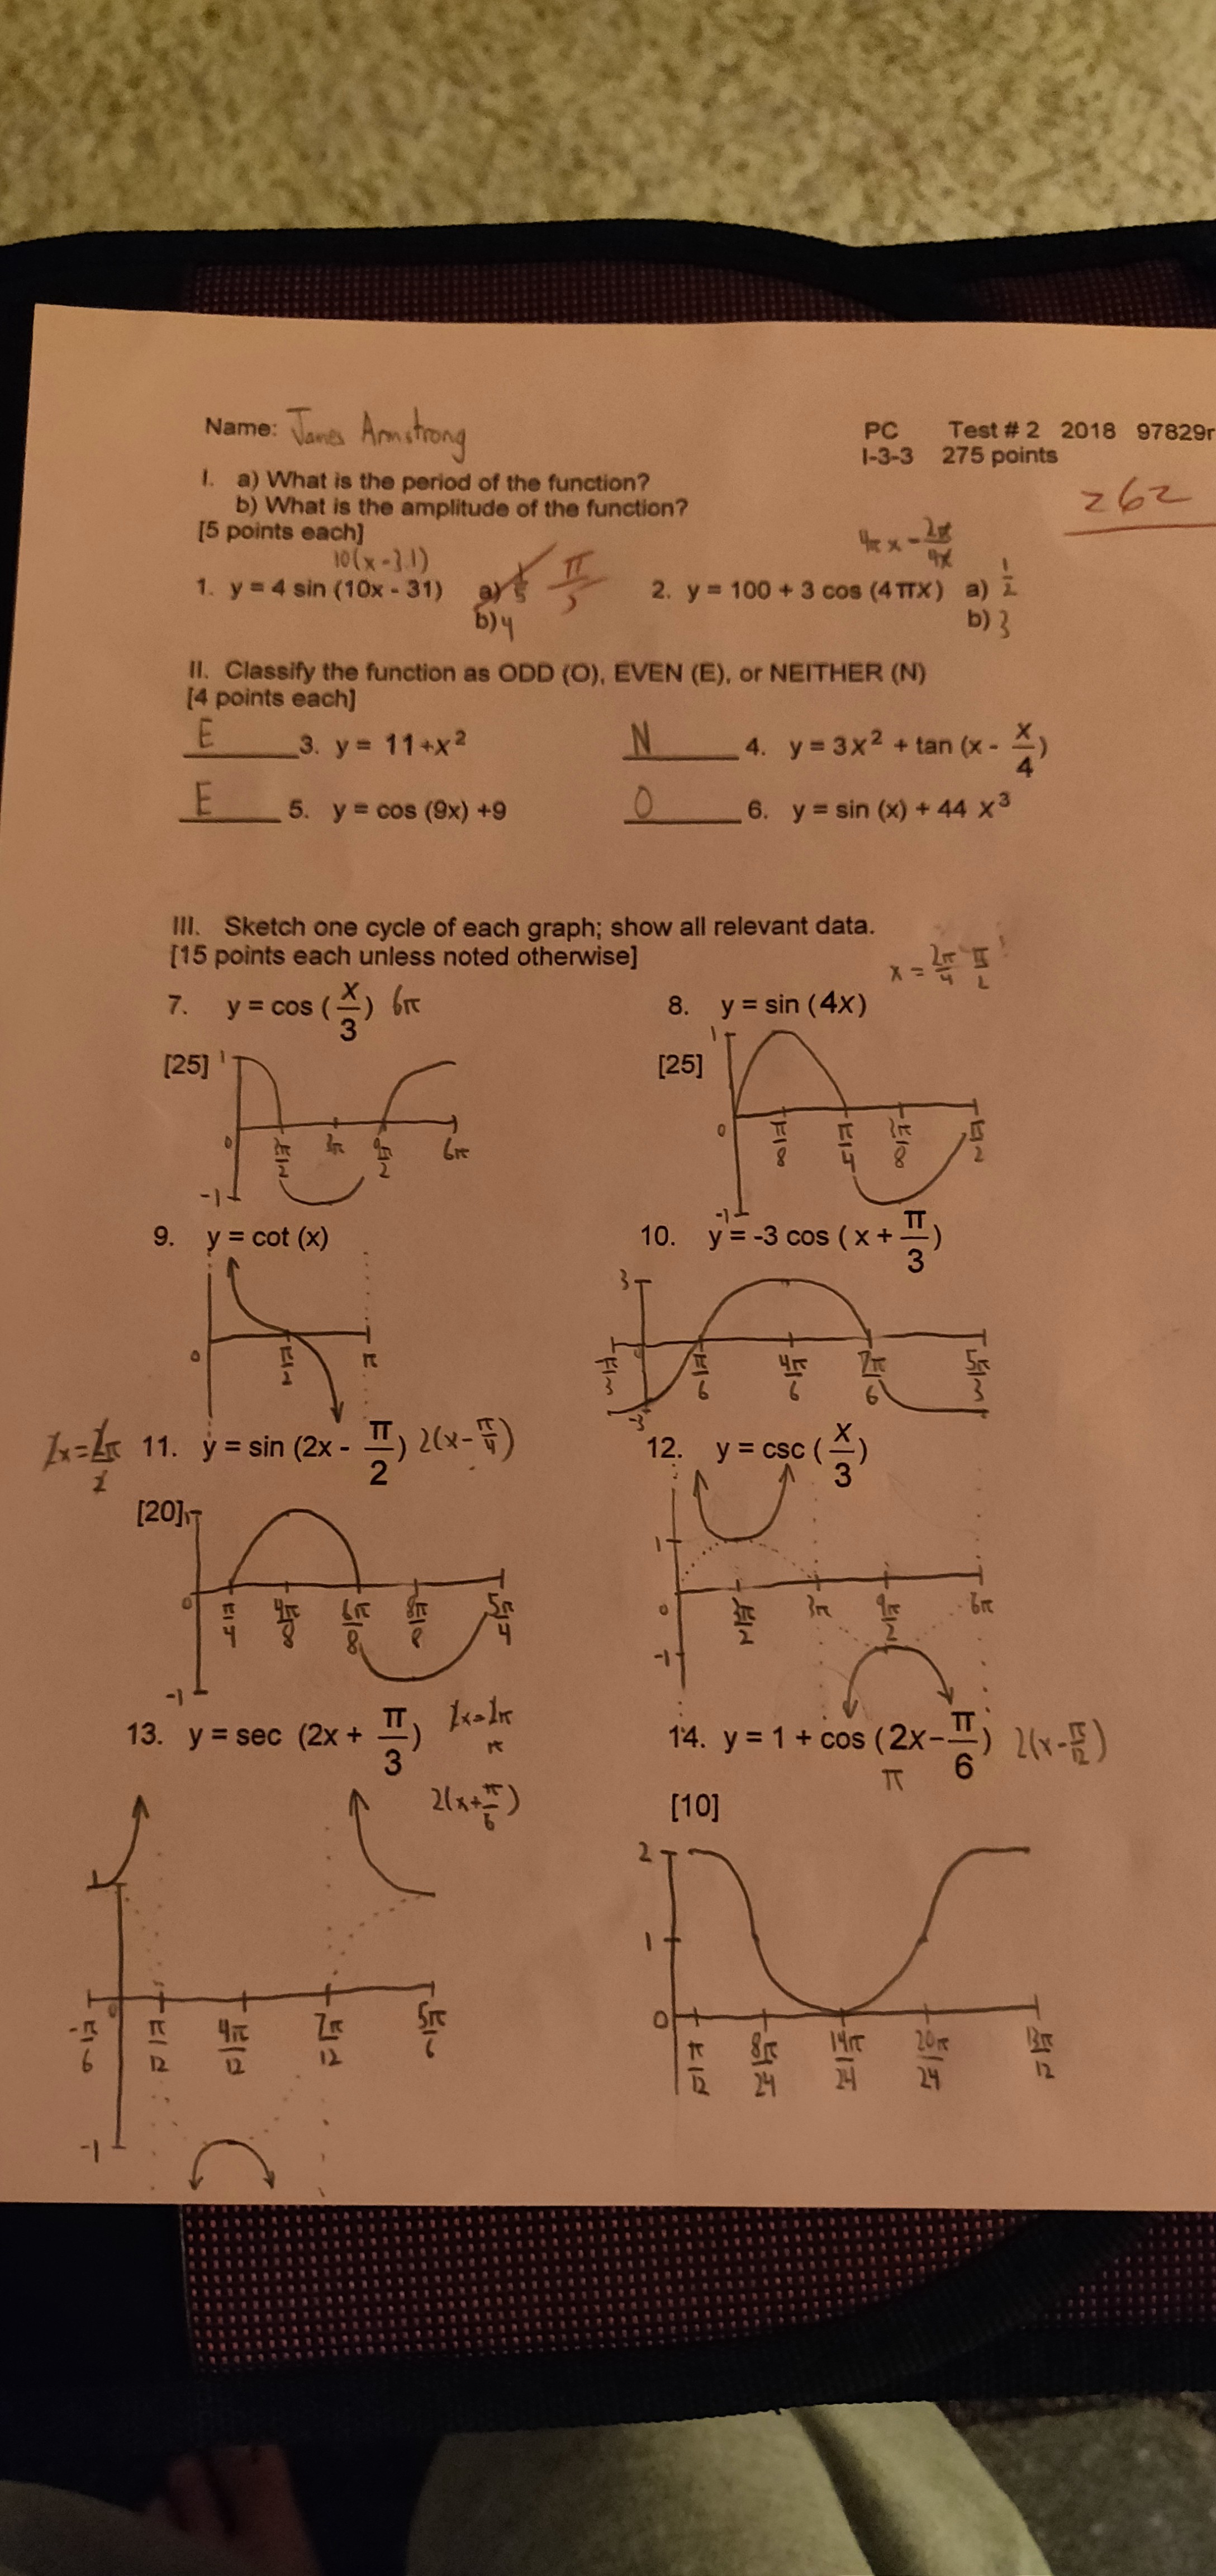 Name: James Armstrong PC Test # 2 2018 97829r
I-3-3 275 points
262
I. a) What is the period of the function?
b) What is the amplitude of the function?
[5 points each]
10(x-3.1) 4π x = 2π/4π
1. y = 4 sin (10x - 31) a) 1/5 π/5 2. y = 100 + 3 cos (4πx) a) 1/2
b) 4 b) 3
II. Classify the function as ODD (O), EVEN (E), or NEITHER (N)
[4 points each]
E 3. y = 11+x² N 4. y = 3x² + tan (x - x/4)
E 5. y = cos (9x) +9 O 6. y = sin (x) + 44 x³
III. Sketch one cycle of each graph; show all relevant data.
[15 points each unless noted otherwise]
x = 2π/4 π/2
7. y = cos (x/3) 6π 8. y = sin (4x)
[25] 1 [25] 1
0 3π/2 3π 9π/2 6π 0 π/8 π/4 3π/8 π/2
-1 -1
9. y = cot (x) 10. y = -3 cos (x + π/3)
3
0 π/2 π -π/3 0 π/6 4π/6 7π/6 5π/3
-3
2x=2π/2 11. y = sin (2x - π/2) 2(x-π/4) 12. y = csc (x/3)
[20] 1 1
0 π/4 4π/8 6π/8 8π/8 5π/4 0 3π/2 3π 9π/2 6π
-1 -1
13. y = sec (2x + π/3) 2x=2π 14. y = 1 + cos (2x-π/6) 2(x-π/12)
π π
2(x+π/6) [10]
1 2
1
0 -π/6 π/12 4π/12 7π/12 5π/6 0 π/12 8π/24 14π/24 20π/24 13π/12
-1